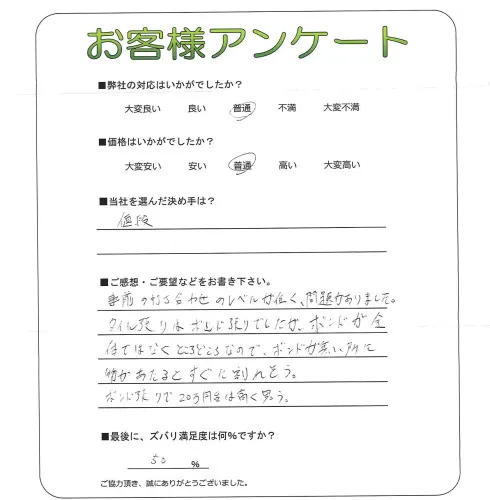 お客様アンケート
■弊社の対応はいかがでしたか?
大変良い 良い 普通 不満 大変不満
■価格はいかがでしたか?
大変安い 安い 普通 高い 大変高い
■当社を選んだ決め手は?
値段
■ご感想・ご要望などをお書き下さい。
事前の打ち合わせのレベルが低く、問題がありました。
タイル張りはボンド張りでしたが、ボンドが全
体ではなくところどころなので、ボンドが無い所に
物があたるとすぐに割れそう。
ボンド張りで20万円台は高く思う。
■最後に、ズバリ満足度は何%ですか?
50 %
ご協力頂き、誠にありがとうございました。